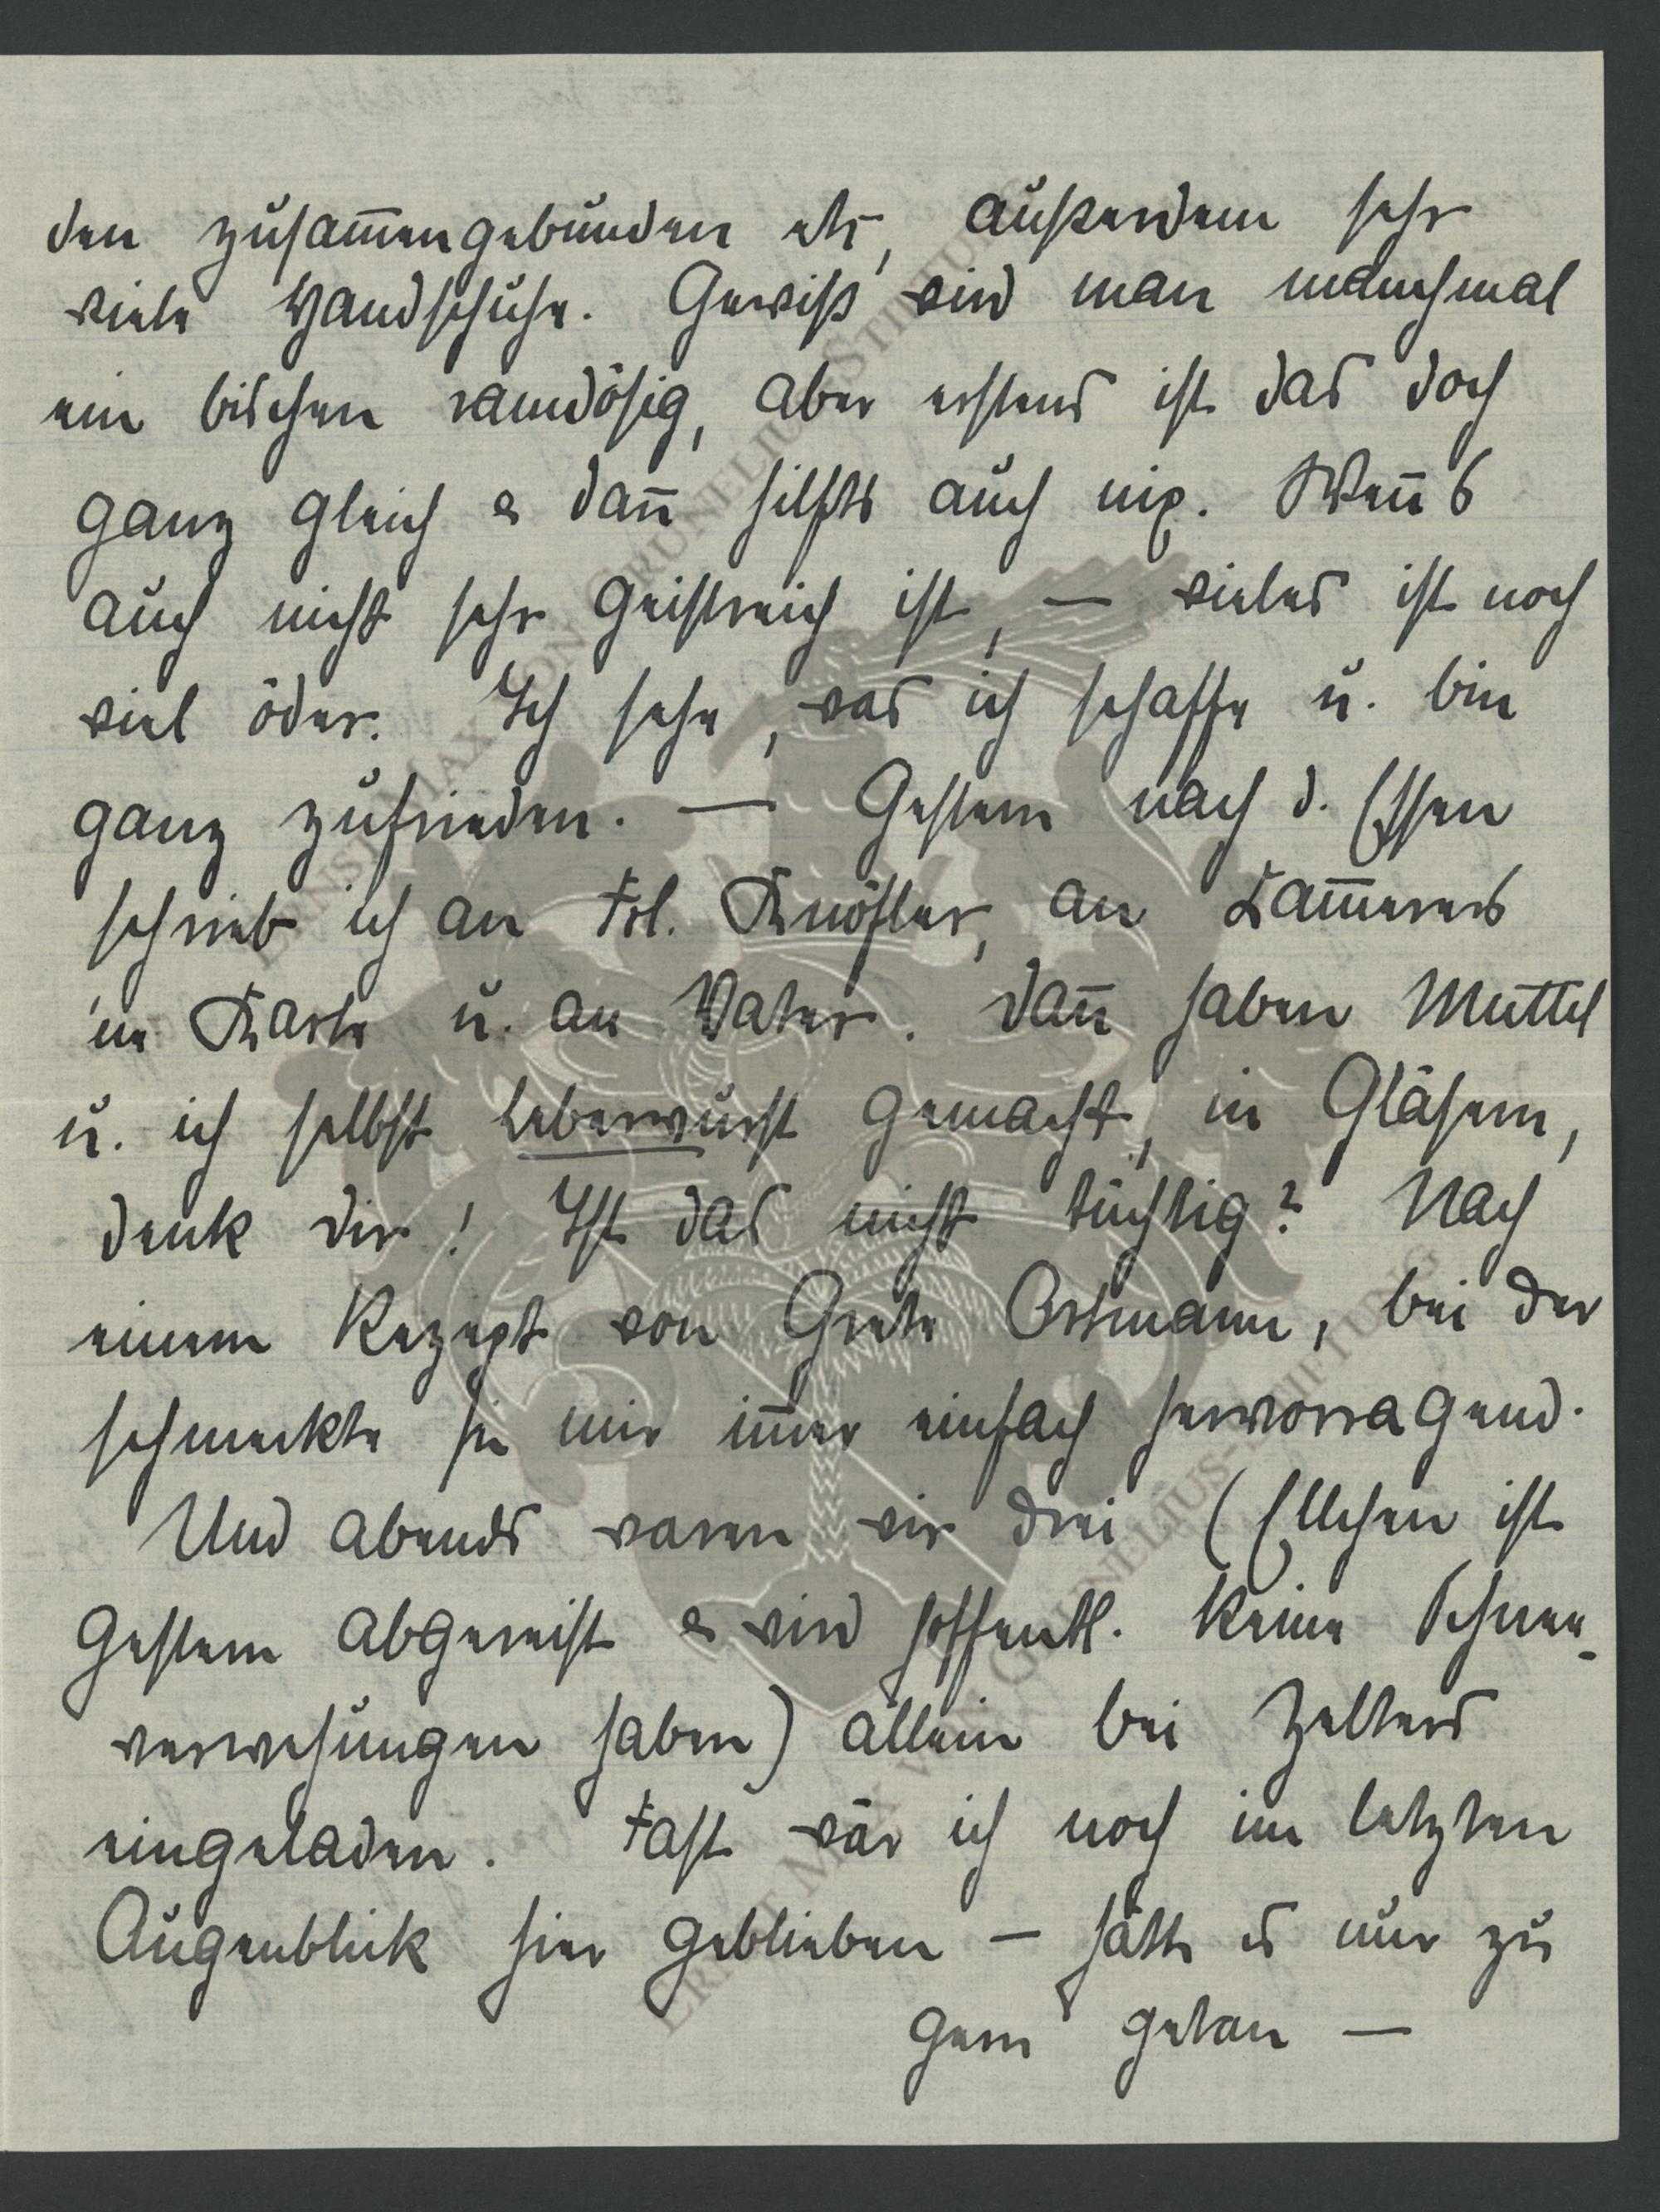 den zusam̅engebunden etc, außerdem sehr
viele Handschuhe. Gewiß wird man manchmal
ein bischen ramdösig, aber erstens ist das doch
ganz gleich & dan̅ hilfts auch nix. Wen̅s
auch nicht sehr geistreich ist, — vieles ist noch
viel öder. Ich sehe, was ich schaffe u. bin
ganz zufrieden. — Gestern nach d. Essen
schrieb ich an Frl. Knöfler, an Lam̅erers
'ne Karte u. an Vater. Dan̅ haben Muttel
u. ich selbst Leberwurst gemacht, in Gläsern,
denk dir! Ist das nicht tüchtig? Nach
einem Rezept von Grete Ortmann, bei der
schmeckte sie mir im̅er einfach hervorragend.
Und abends waren wir drei (Ellchen ist
gestern abgereist & wird hoffentl. keine Schnee-
verwehungen haben) allein bei Zelters
eingeladen. Fast wär ich noch im letzten
Augenblick hier geblieben — hätt es nur zu
gern getan —
ERNST MAX VON GRUNELIUS-STIFTUNG
ERNST MAX VON GRUNELIUS-STIFTUNG